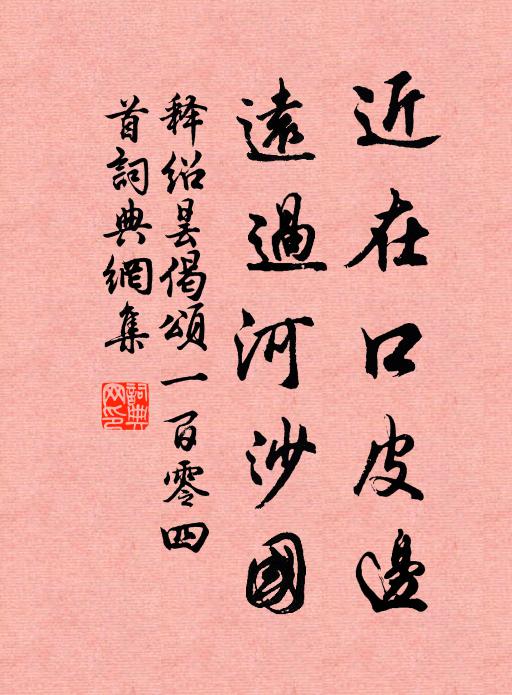 近在口皮邊
遠過河沙國
释紹曇偈頌一百零四
首詞典網集
詞典
网印